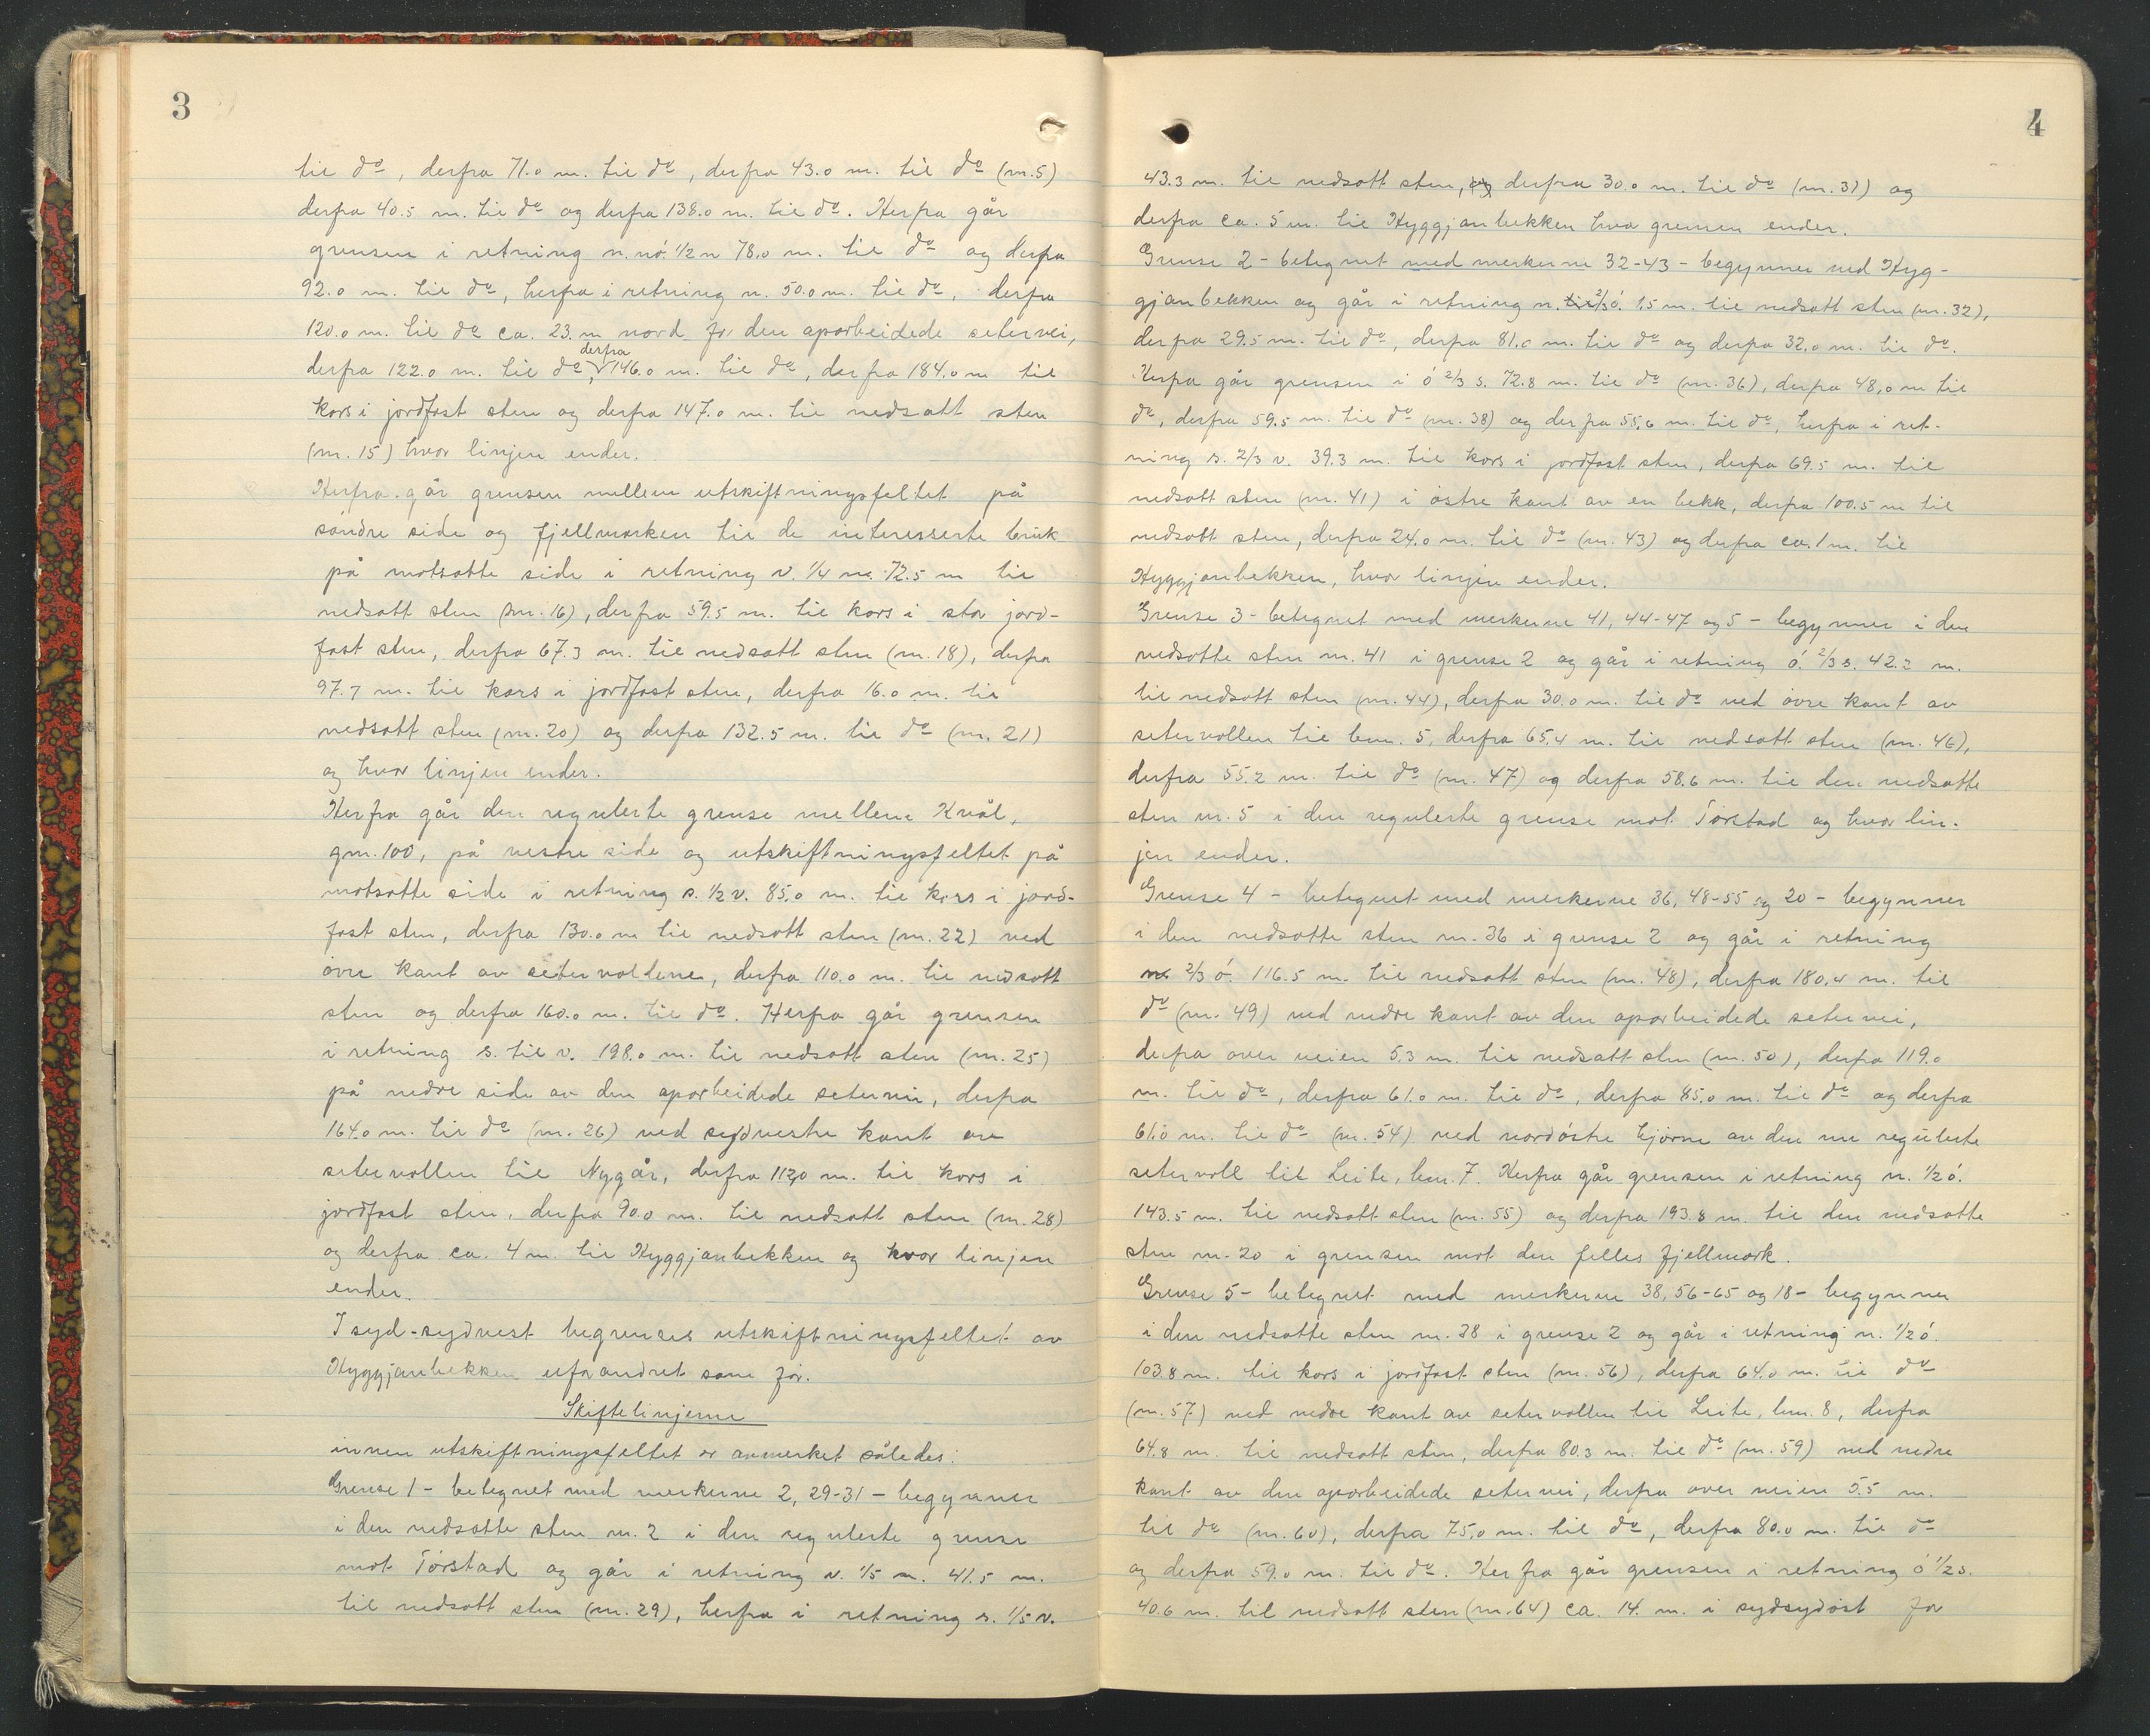 3
til dº, derfra 71.0 m. til dº, derfra 43.0 m. til dº (m.5)
derfra 40.5 m. til dº og derfra 138.0 m. til dº. Herfra går
grensen i retning n.nó. 1/2 n 78.0 m. til dº og derfra
92.0 m. til dº, herfra i retning n. 50.0 m. til dº, derfra
120.0 m. til dº ca. 23. m nord for den oparbeidede setervei,
derfra 122.0 m. til dº, derfra 146.0 m. til dº, derfra 184.0 m til
kors i jordfast sten og derfra 147.0 m. til nedsatt sten
(m. 15) hvor linjen ender.
Herfra går grensen mellem utskiftningsfeltet på
søndre side og fjellmarken til de interesserte bruk
på motsatte side i retning v. 1/4 n. 72.5 m til
nedsatt sten (m. 16), derfra 59.5 m. til kors i stor jord-
fast sten, derfra 67.3 m. til nedsatt sten (m. 18), derfra
97.7 m. til kors i jordfast sten, derfra 16.0 m. til
nedsatt sten (m. 20) og derfra 132.5 m. til dº (m. 21)
og hvor linjen ender.
Herfra går den regulerte grense mellem Kvål,
gm. 100, på vestre side og utskiftningsfeltet på
motsatte side i retning s. 1/2 v. 85.0 m. til kors i jord-
fast sten, derfra 130.0 m til nedsatt sten (m. 22) ved
øvre kant av setervoldene, derfra 110.0 m. til nedsatt
sten og derfra 160.0 m. til dº. Herfra går grensen
i retning s. til v. 198.0 m. til nedsatt sten (m. 25)
på nedre side av den oparbeidede setervei, derfra
164.0 m. til dº (m. 26) ved sydvestre kant av
setervollen til Nygår, derfra 112.0 m. til kors i
jordfast sten, derfra 90.0 m. til nedsatt sten (m. 28)
og derfra ca. 4 m. til Hyggjanbekken og hvor linjen
ender.
I syd-sydvest begrenses utskiftningsfeltet av
Hyggjanbekken uforandret som før.
Skiftelinjerne
innen utskiftningsfeltet er avmerket således:
Grense 1 - betegnet med merkerne 2, 29-31 - begynner
i den nedsatte sten m. 2 i den regulerte grense
mot Torstad og går i retning v. 1/5 n. 41.5 m.
til nedsatt sten (m. 29), herfra i retning s. 1/5 v.
4
43.3 m. til nedsatt sten, og derfra 30.0 m. til dº (m. 31) og
derfra ca. 5 m. til Hyggjanbekken hvor grensen ender.
Grense 2 - betegnet med merkerne 32-43 - begynner ved Hyg-
gjanbekken og går i retning n. til 2/3 ó. 1.5 m. til nedsatt sten (m. 32),
derfra 29.5 m. til dº, derfra 81.0 m. til dº og derfra 32.0 m. til dº.
Herfra går grensen i ó 2/3 s. 72.8 m. til dº (m. 36), derfra 48.0 m til
dº, derfra 59.5 m. til dº (m. 38) og derfra 55.6 m. til dº, herfra i ret-
ning s. 2/3 v. 39.3 m. til kors i jordfast sten, derfra 69.5 m. til
nedsatt sten (m. 41) i østre kant av en bekk, derfra 100.5 m til
nedsatt sten, derfra 24.0 m. til dº (m. 43) og derfra ca. 1 m. til
Hyggjanbekken, hvor linjen ender.
Grense 3 - betegnet med merkerne 41, 44-47 og 5 - begynner i den
nedsatte sten m. 41 i grense 2 og går i retning ó. 2/3 s. 42.2 m.
til nedsatt sten (m. 44), derfra 30.0 m. til dº ved øvre kant av
setervollen til bm. 5, derfra 65.4 m. til nedsatt sten (m. 46),
derfra 55.2 m. til dº (m. 47) og derfra 58.6 m. til den nedsatte
sten m. 5 i den regulerte grense mot Torstad og hvor lin-
jen ender.
Grense 4 - betegnet med merkerne 36, 48-55 og 20 - begynner
i den nedsatte sten m. 36 i grense 2 og går i retning
n. 2/3 ó. 116.5 m. til nedsatt sten (m. 48), derfra 180.4 m. til
dº (m. 49) ved nedre kant av den oparbeidede setervei,
derfra over veien 5.3 m. til nedsatt sten (m. 50), derfra 119.0
m. til dº, derfra 61.0 m. til dº, derfra 85.0 m. til dº og derfra
61.0 m. til dº (m. 54) ved nordøstre hjørne av den nu regulerte
setervoll til Leite, bm. 7. Herfra går grensen i retning n. 1/2 ó.
143.5 m. til nedsatt sten (m. 55) og derfra 193.8 m. til den nedsatte
sten m. 20 i grensen mot den felles fjellmark.
Grense 5 - betegnet med merkerne 38, 56-65 og 18 - begynner
i den nedsatte sten m. 38 i grense 2 og går i retning n. 1/2 ó.
103.8 m. til kors i jordfast sten (m. 56), derfra 64.0 m. til dº
(m. 57) ved nedre kant av setervollen til Leite, bm. 8, derfra
64.8 m. til nedsatt sten, derfra 80.3 m. til dº (m. 59) ved nedre
kant av den oparbeidede setervei, derfra over veien 5.5 m.
til dº (m. 60), derfra 75.0 m. til dº, derfra 80.0 m. til dº
og derfra 59.0 m. til dº. Herfra går grensen i retning ó 1/2 s.
40.6 m. til nedsatt sten (m. 64) ca. 14. m. i sydsydøst for